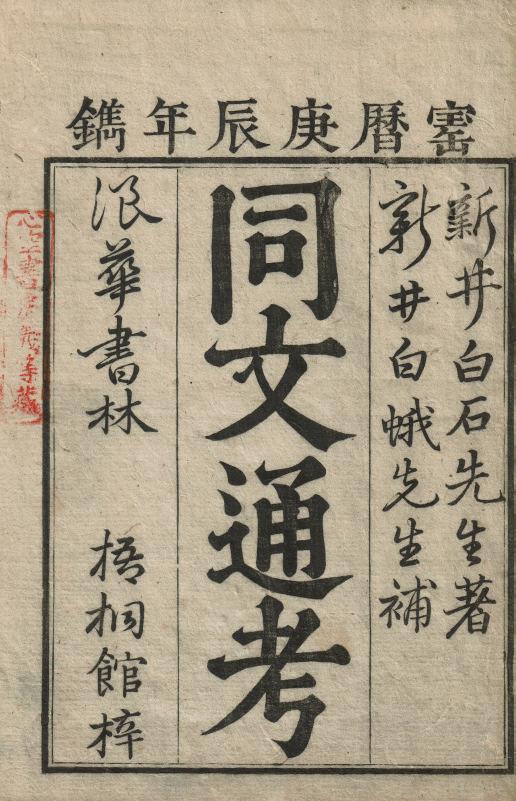 寚暦庚辰年鐫
新井白石先生著
新井白蛾先生補
同文通考
浪華書林 梧桐館梓